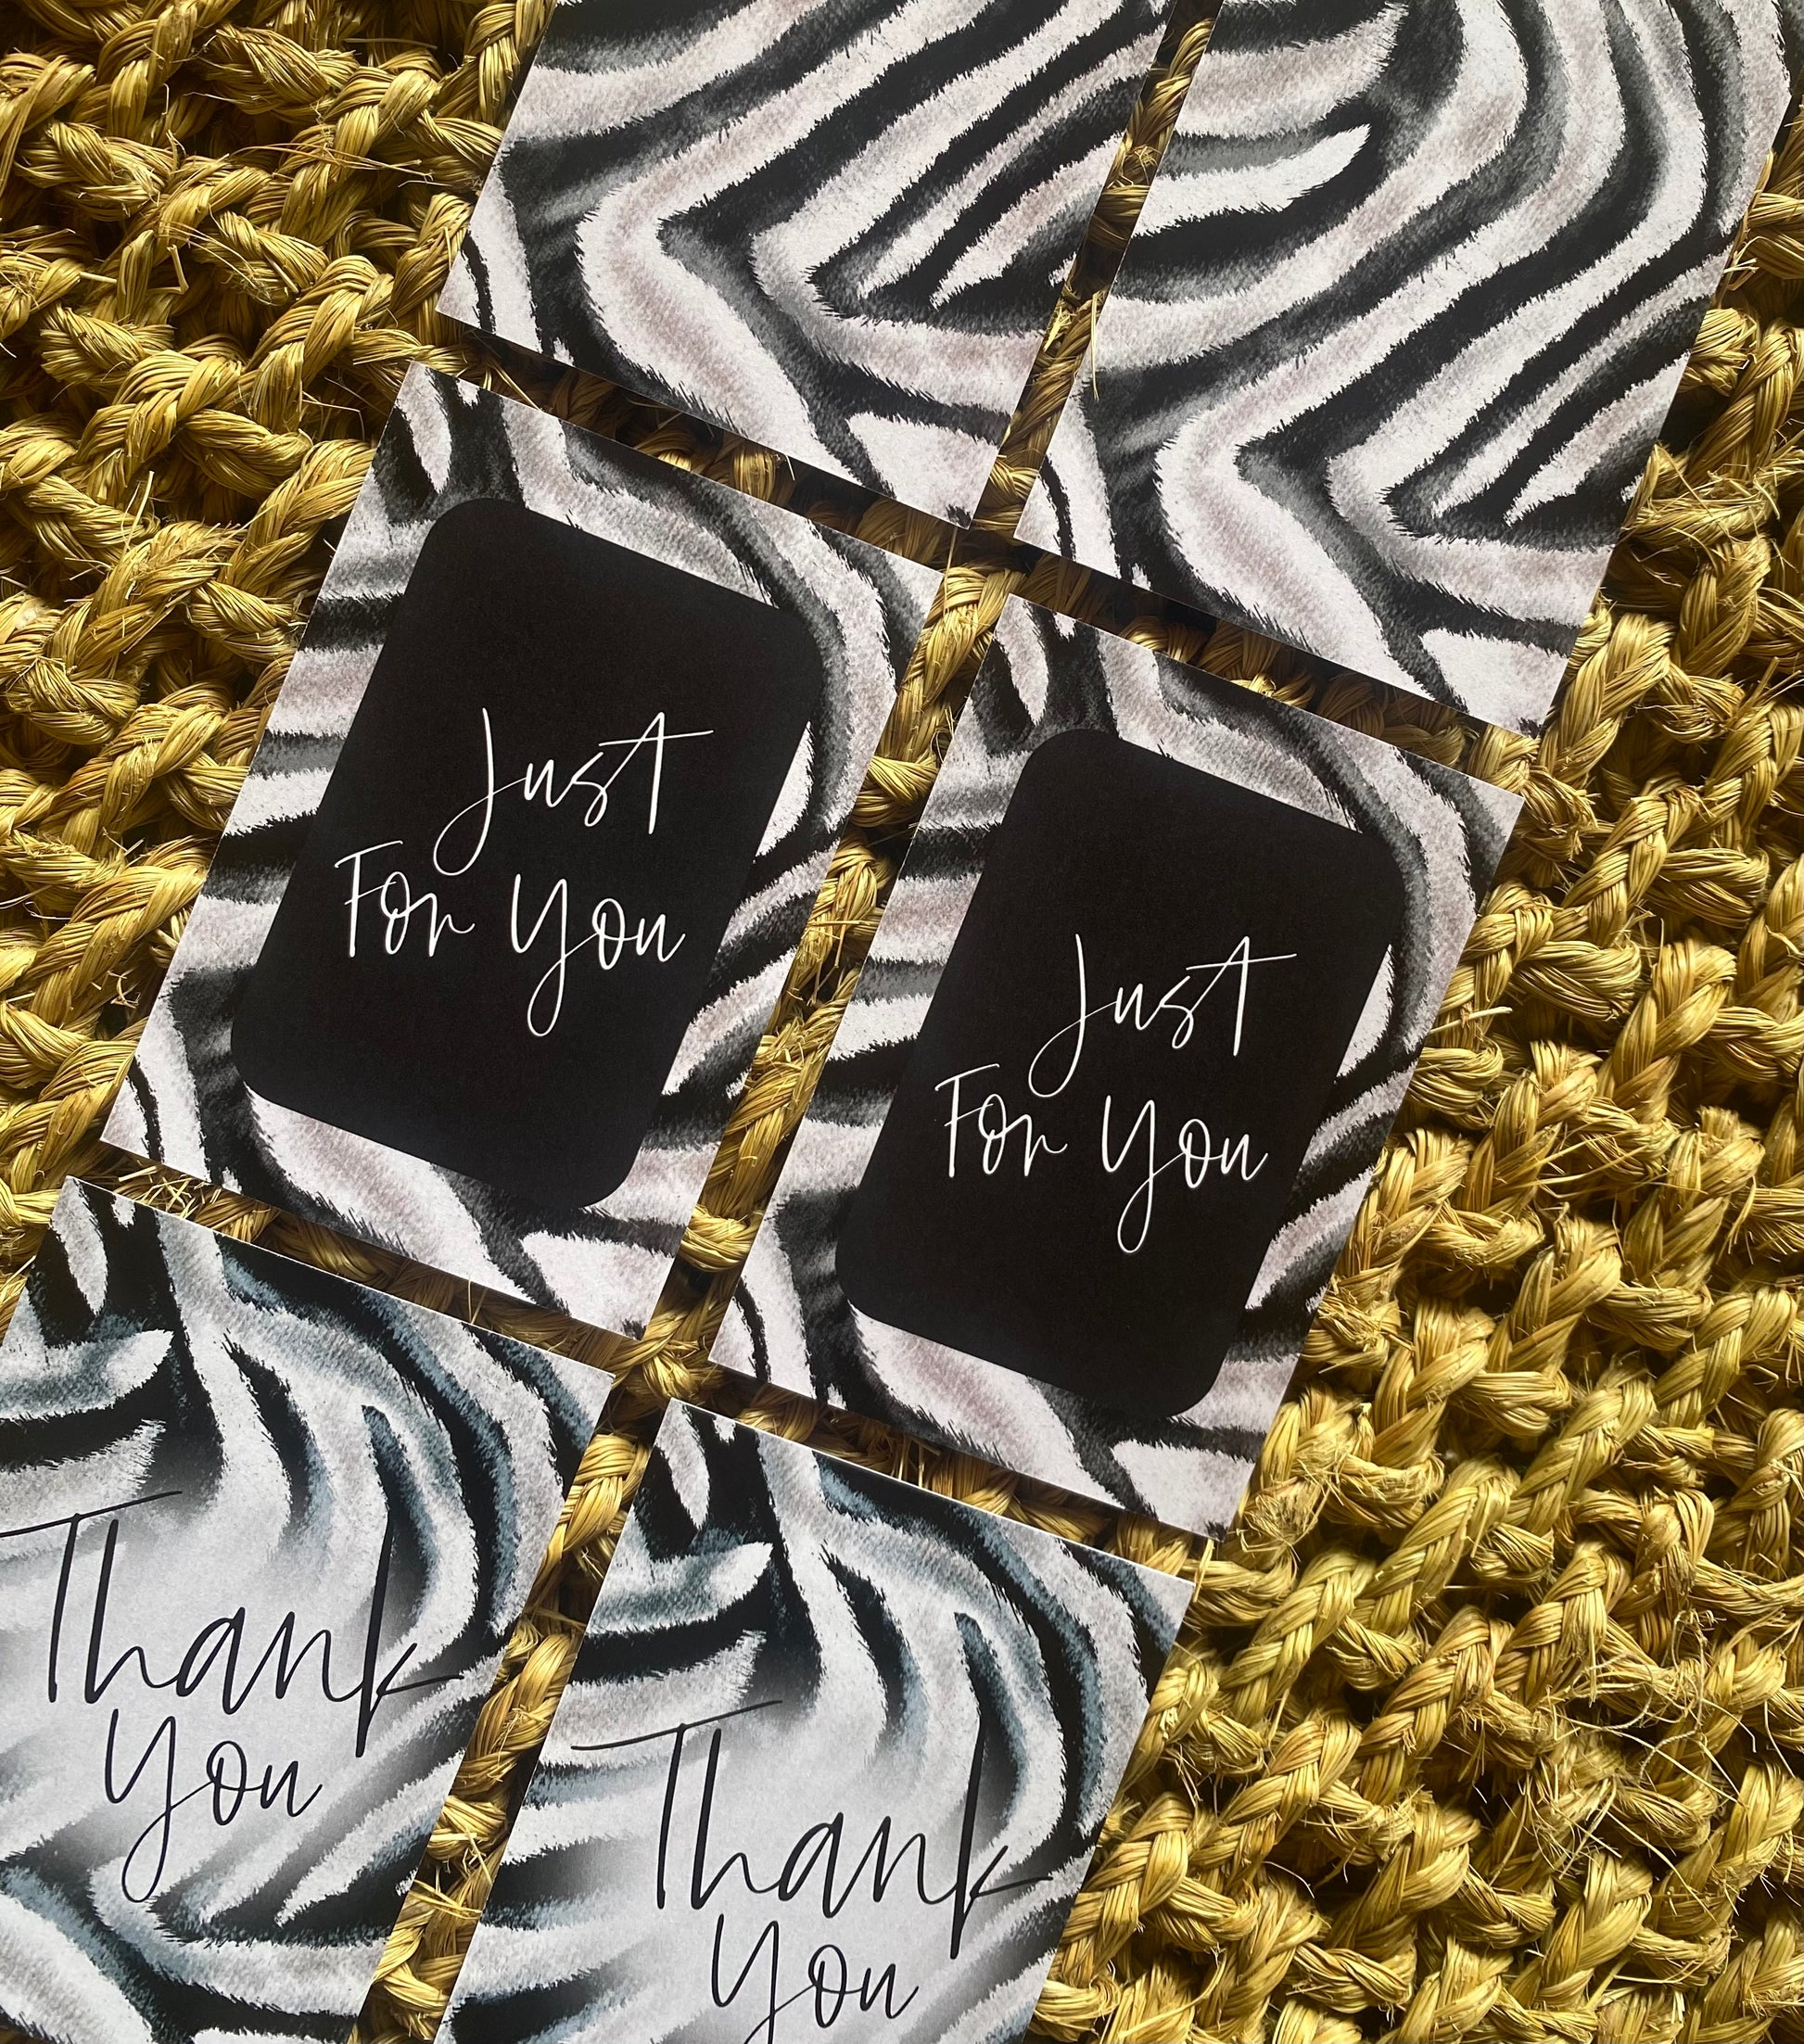 Just
For You
Just
For You
Thank
You
Thank
You